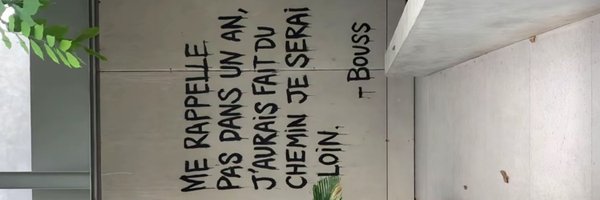 ME RAPPELLE
PAS DANS UN AN,
J'AURAIS FAIT DU
CHEMIN JE SERAI
LOIN.
- BOUSS